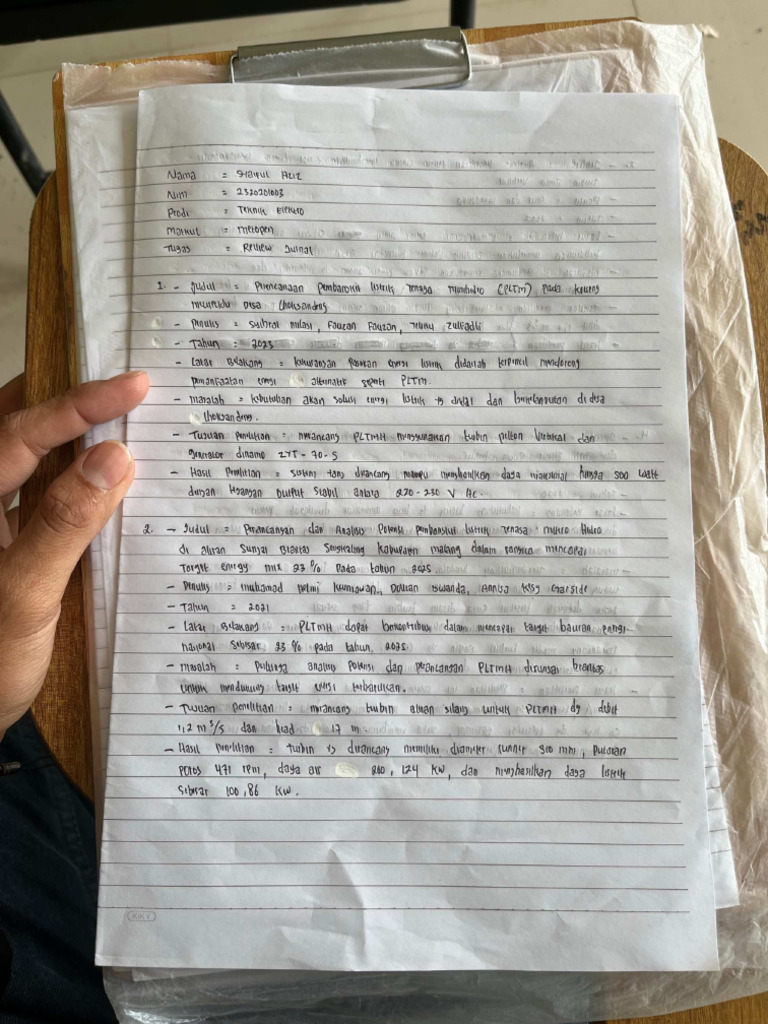 Nama = Syaiful Aziz
Nim = 2320201003
Prodi = Teknik Elektro
Matkul = metopen
Tugas = Review Jurnal
1. - Judul = Perencanaan Pembangkit listrik Tenaga mikrohidro (PLTM) Pada Krueng
Desa Lhoksandeng
- Penulis = Suibrat, Fauzan Fauzan, Teuku Zulfadli
- Tahun = 2023
- Latar Belakang = kekurangan Pasokan energi listrik didaerah terpencil mendorong
pemanfaatan energi alternatif seperti PLTM.
- masalah = kebutuhan akan solusi energi listrik yg andal dan berkelanjutan di desa
Lhoksandeng.
- Tujuan penelitian = merancang PLTMH menggunakan turbin pelton Vertikal dan
generator dinamo ZYT-70-S
- Hasil Penelitian = sistem yang dirancang mampu menghasilkan daya maksimal hingga 500 watt
dengan tegangan output stabil antara 220-230 V AC.
2. - Judul = Perancangan dan Analisis Potensi Pembangkit listrik Tenaga mikro Hidro
di aliran Sungai brantas Sengkaling kabupaten malang dalam rangka mencapai
Target energy mix 23% Pada tahun 2025
- Penulis = muhamad Kurniawan, Iswanda, Annisa Kesy Garside
- Tahun = 2021
- Latar Belakang = PLTMH dapat berkontribusi dalam mencapai target bauran energi
nasional Sebesar 23% pada tahun 2025.
- masalah = Perlunya analisis potensi dan perancangan PLTMH disungai brantas
untuk mendukung target energi terbarukan.
- Tujuan penelitian = merancang turbin aliran silang untuk PLTMH dg debit
1,2 m³/s dan head 17 m
- Hasil penelitian = turbin yg dirancang memiliki diameter runner 500 mm, putaran
poros 471 rpm, daya air 200,124 kW, dan menghasilkan daya listrik
sebesar 100,86 kW.
KIKY